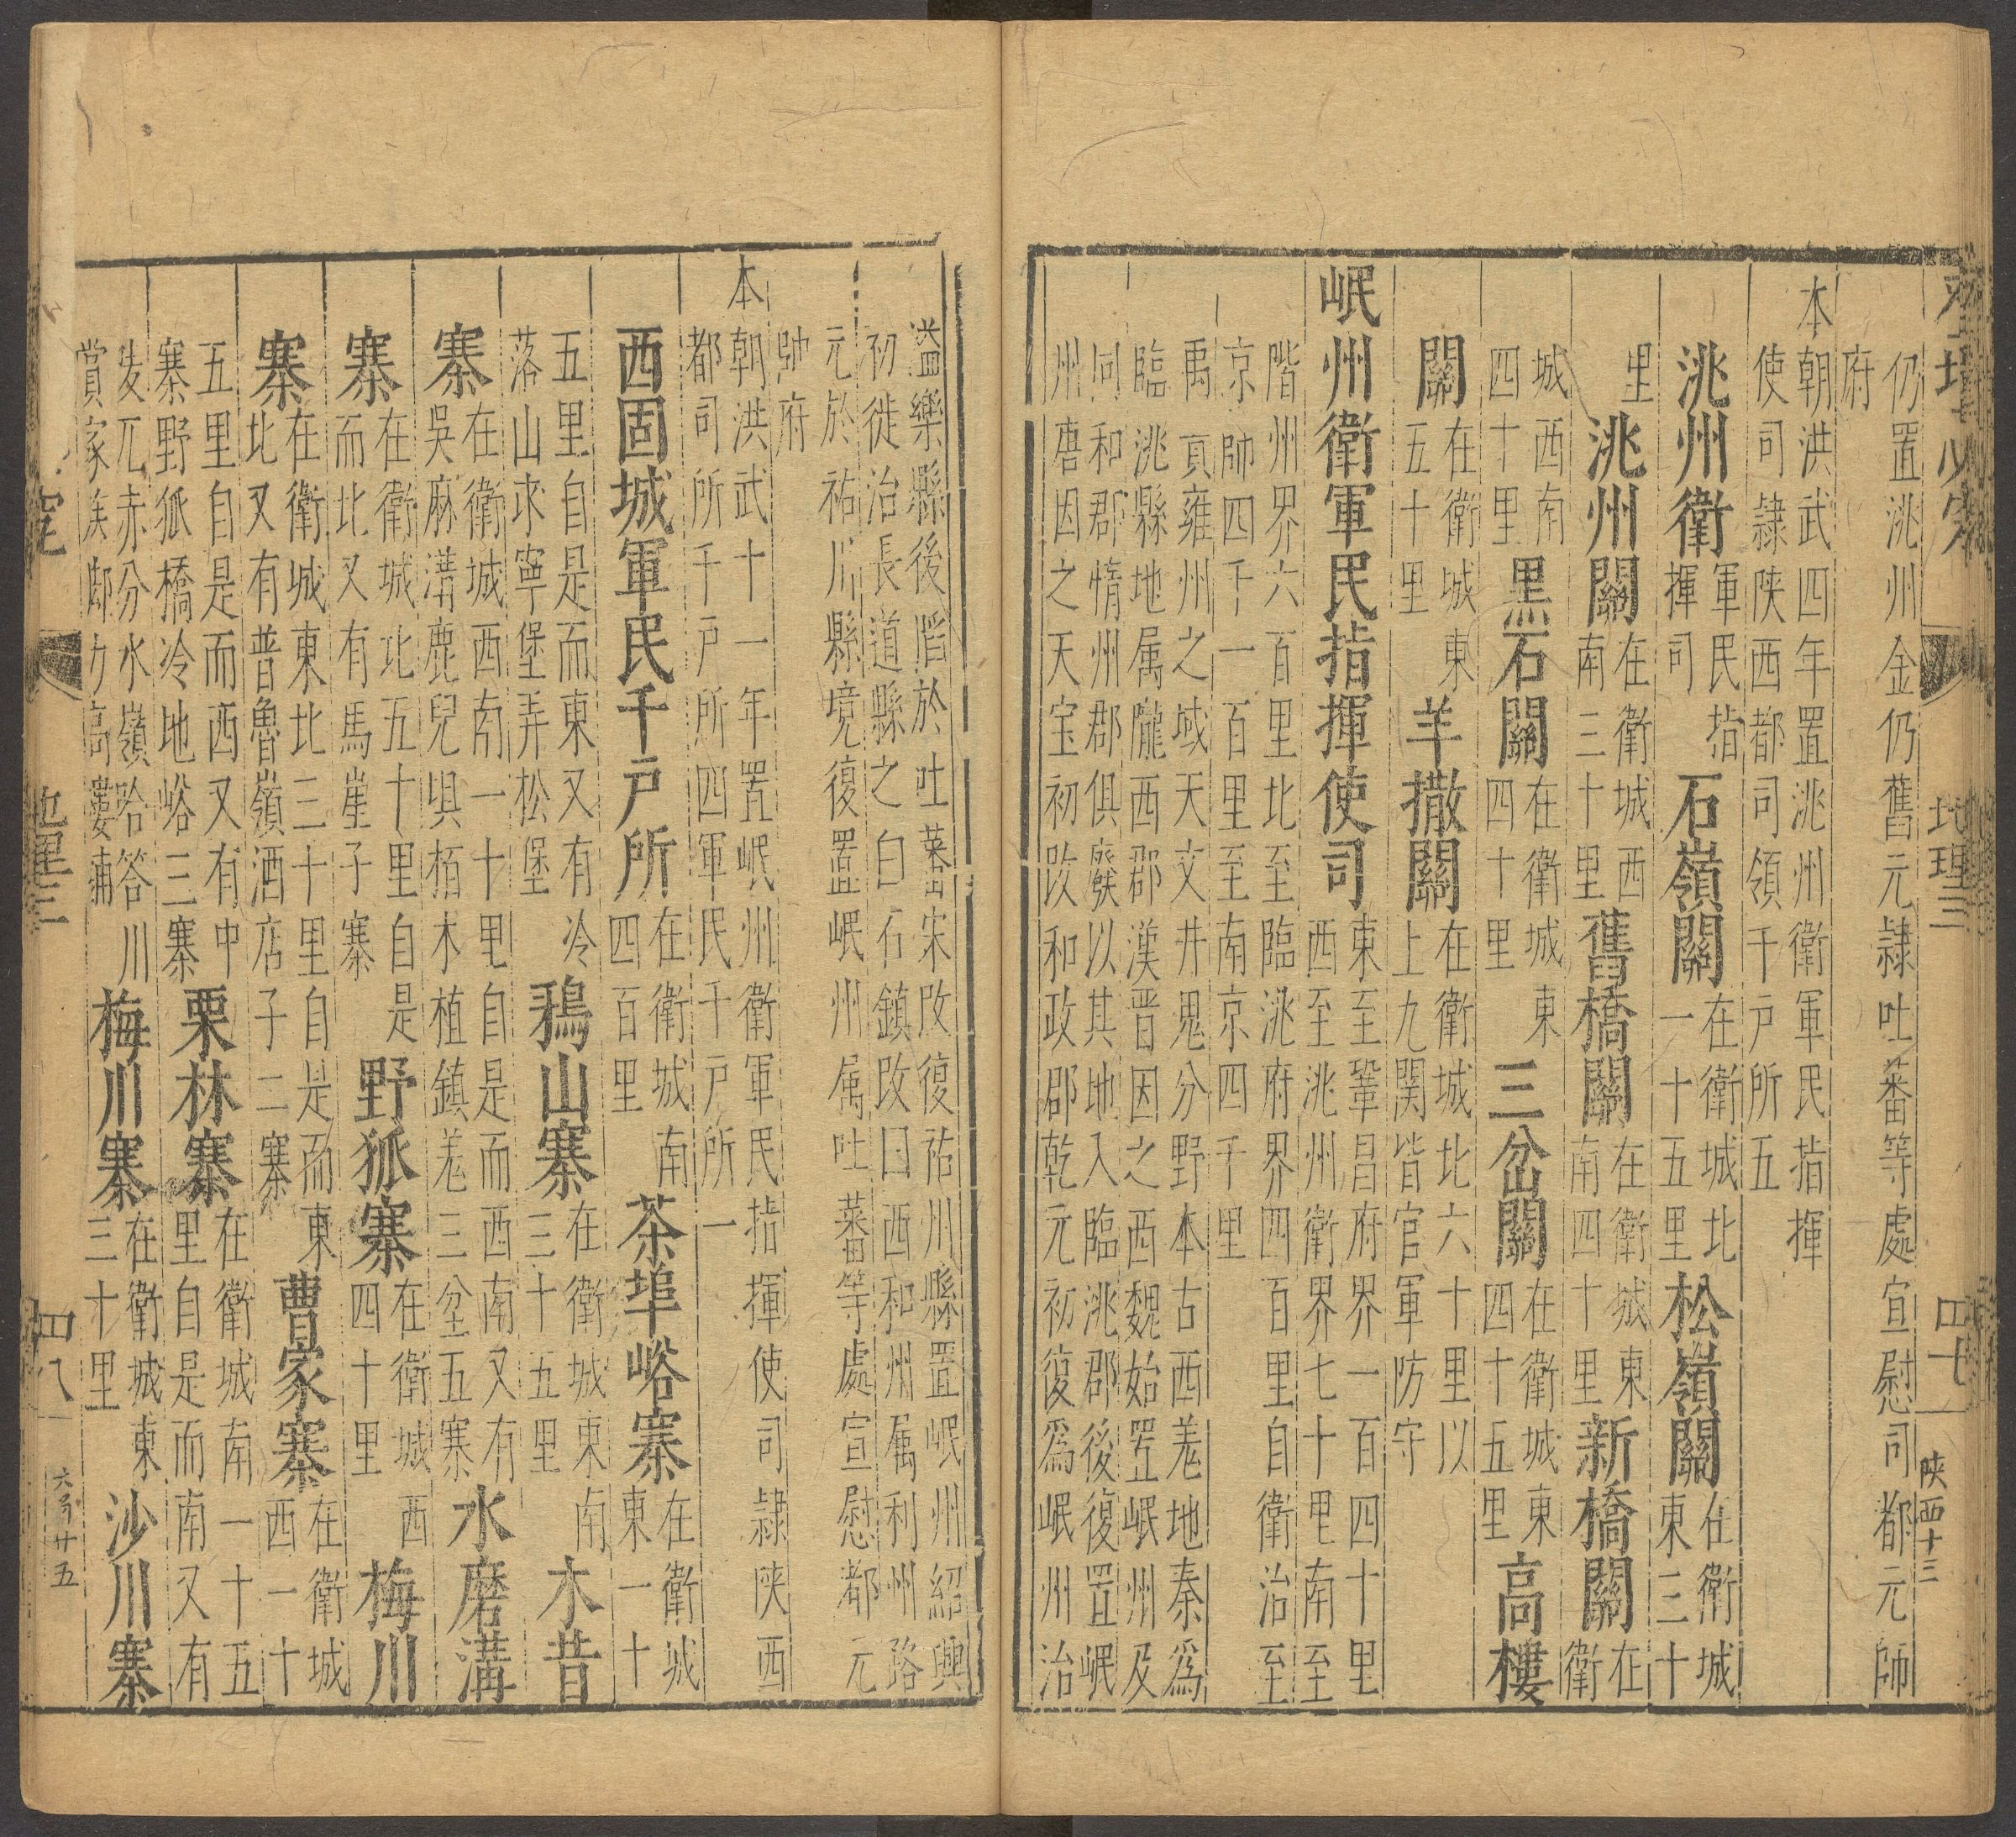 地理三 四十七 陝西四十三
仍置洮州金仍舊元隸吐蕃等處宣慰司都元師
府
本朝洪武四年置洮州衛軍民指揮
使司隷陕西都司領千戸所五
洮州衛軍民指揮司 石嶺關在衛城北一十五里 松嶺關在衛城東三十
里 洮州關在衛城西南三十里 舊橋關在衛城東南四十里 新橋關在衛
城西南四十里 黒石關在衛城東四十里 三岔關在衛城東四十五里 高樓
關在衛城東五十里 羊撒關在衛城北六十里以上九関皆官軍防守
岷州衛軍民指揮使司東至鞏昌府界一百四十里西至洮州衛界七十里南至
階州界六百里北至臨洮府界四百里自衛治至京師四千一百里至南京四千里
禹貢雍州之域天文井鬼分野本古西羗地秦爲
臨洮縣地属隴西郡漢晋因之西魏始置岷州及
同和郡惰州郡俱廢以其地入臨洮郡後復置岷
州唐因之天宝初攺和政郡乾元初復爲岷州治
溢樂縣後䧟於吐蕃宋攺復祐川縣置岷州紹興
初徙治長道縣之白石鎮攺曰西和州属利州路
元於祐川縣境復置岷州属吐蕃等處宣慰都元
帥府
本朝洪武十一年置岷州衛軍民指揮使司隷陕西
都司所千戸所四軍民千戸所一
西固城軍民千戸所在衛城南四百里 茶埠峪寨在衛城東一十
五里自是而東又有冷落山永寧堡弄松堡 鵶山寨在衛城東南三十五里 木昔
寨在衛城西南一十里自是而西南又有吳麻溝鹿兒埧栢木植鎮羗三岔五寨 水磨溝
寨在衛城北五十里自是而北又有馬崖子寨 野狐寨在衛城西四十里 梅川
寨在衛城東北三十里自是而東北又有普魯嶺酒店子二寨 曹家寨在衛城西一十
五里自是而西又有中寨野狐橋冷地峪三寨 栗林寨在衛城南一十五里自是而南又有
兀赤分水嶺哈答川賞家族 力高婁鋪 梅川寨在衛城東三十里 沙川寨
地里三 四八 六 廿五